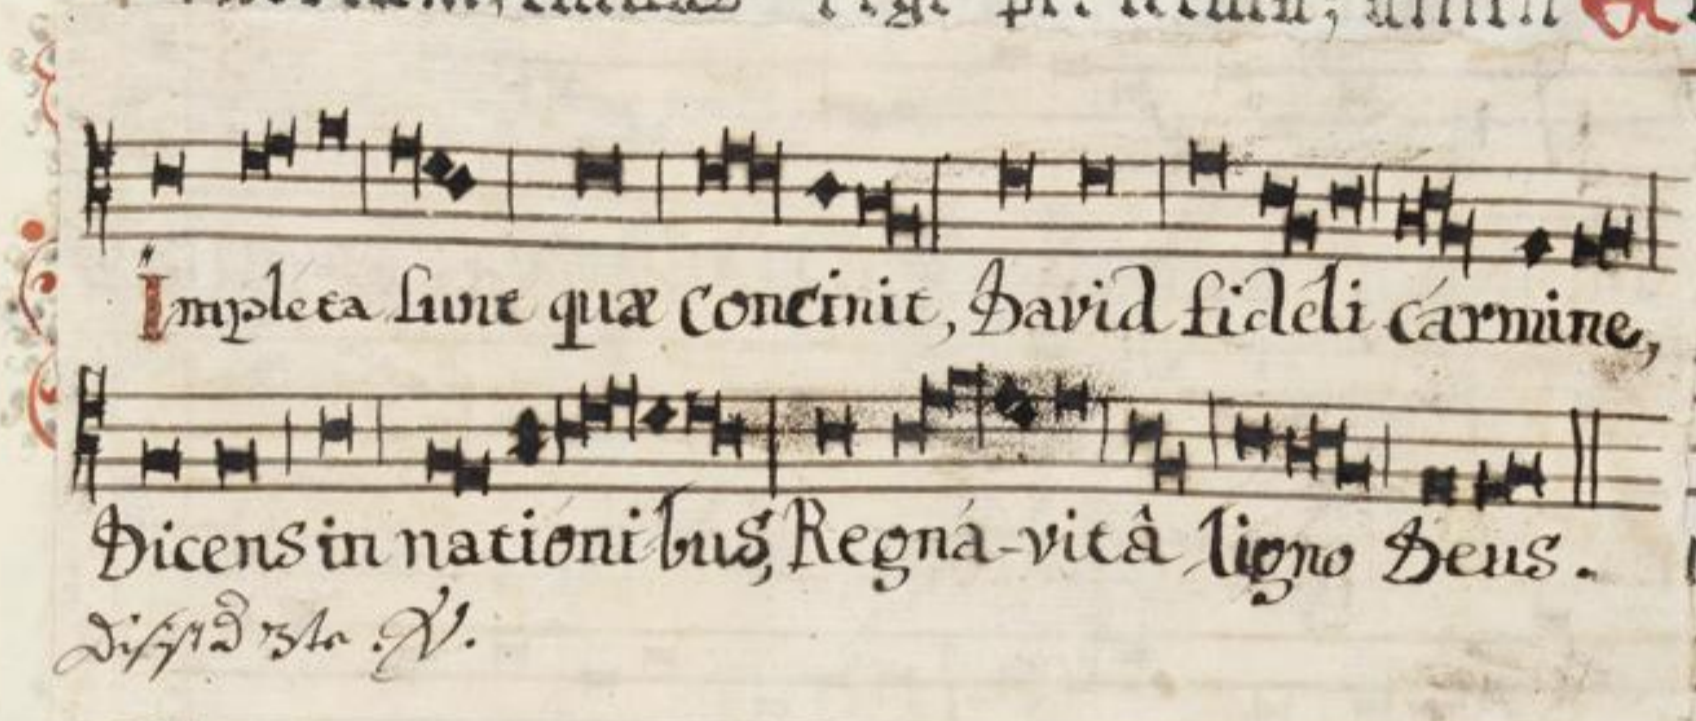 Impléta sunt quæ concinit, David fidéli cármine,
Dicens in natiónibus, Regná-vit â ligno Deus.